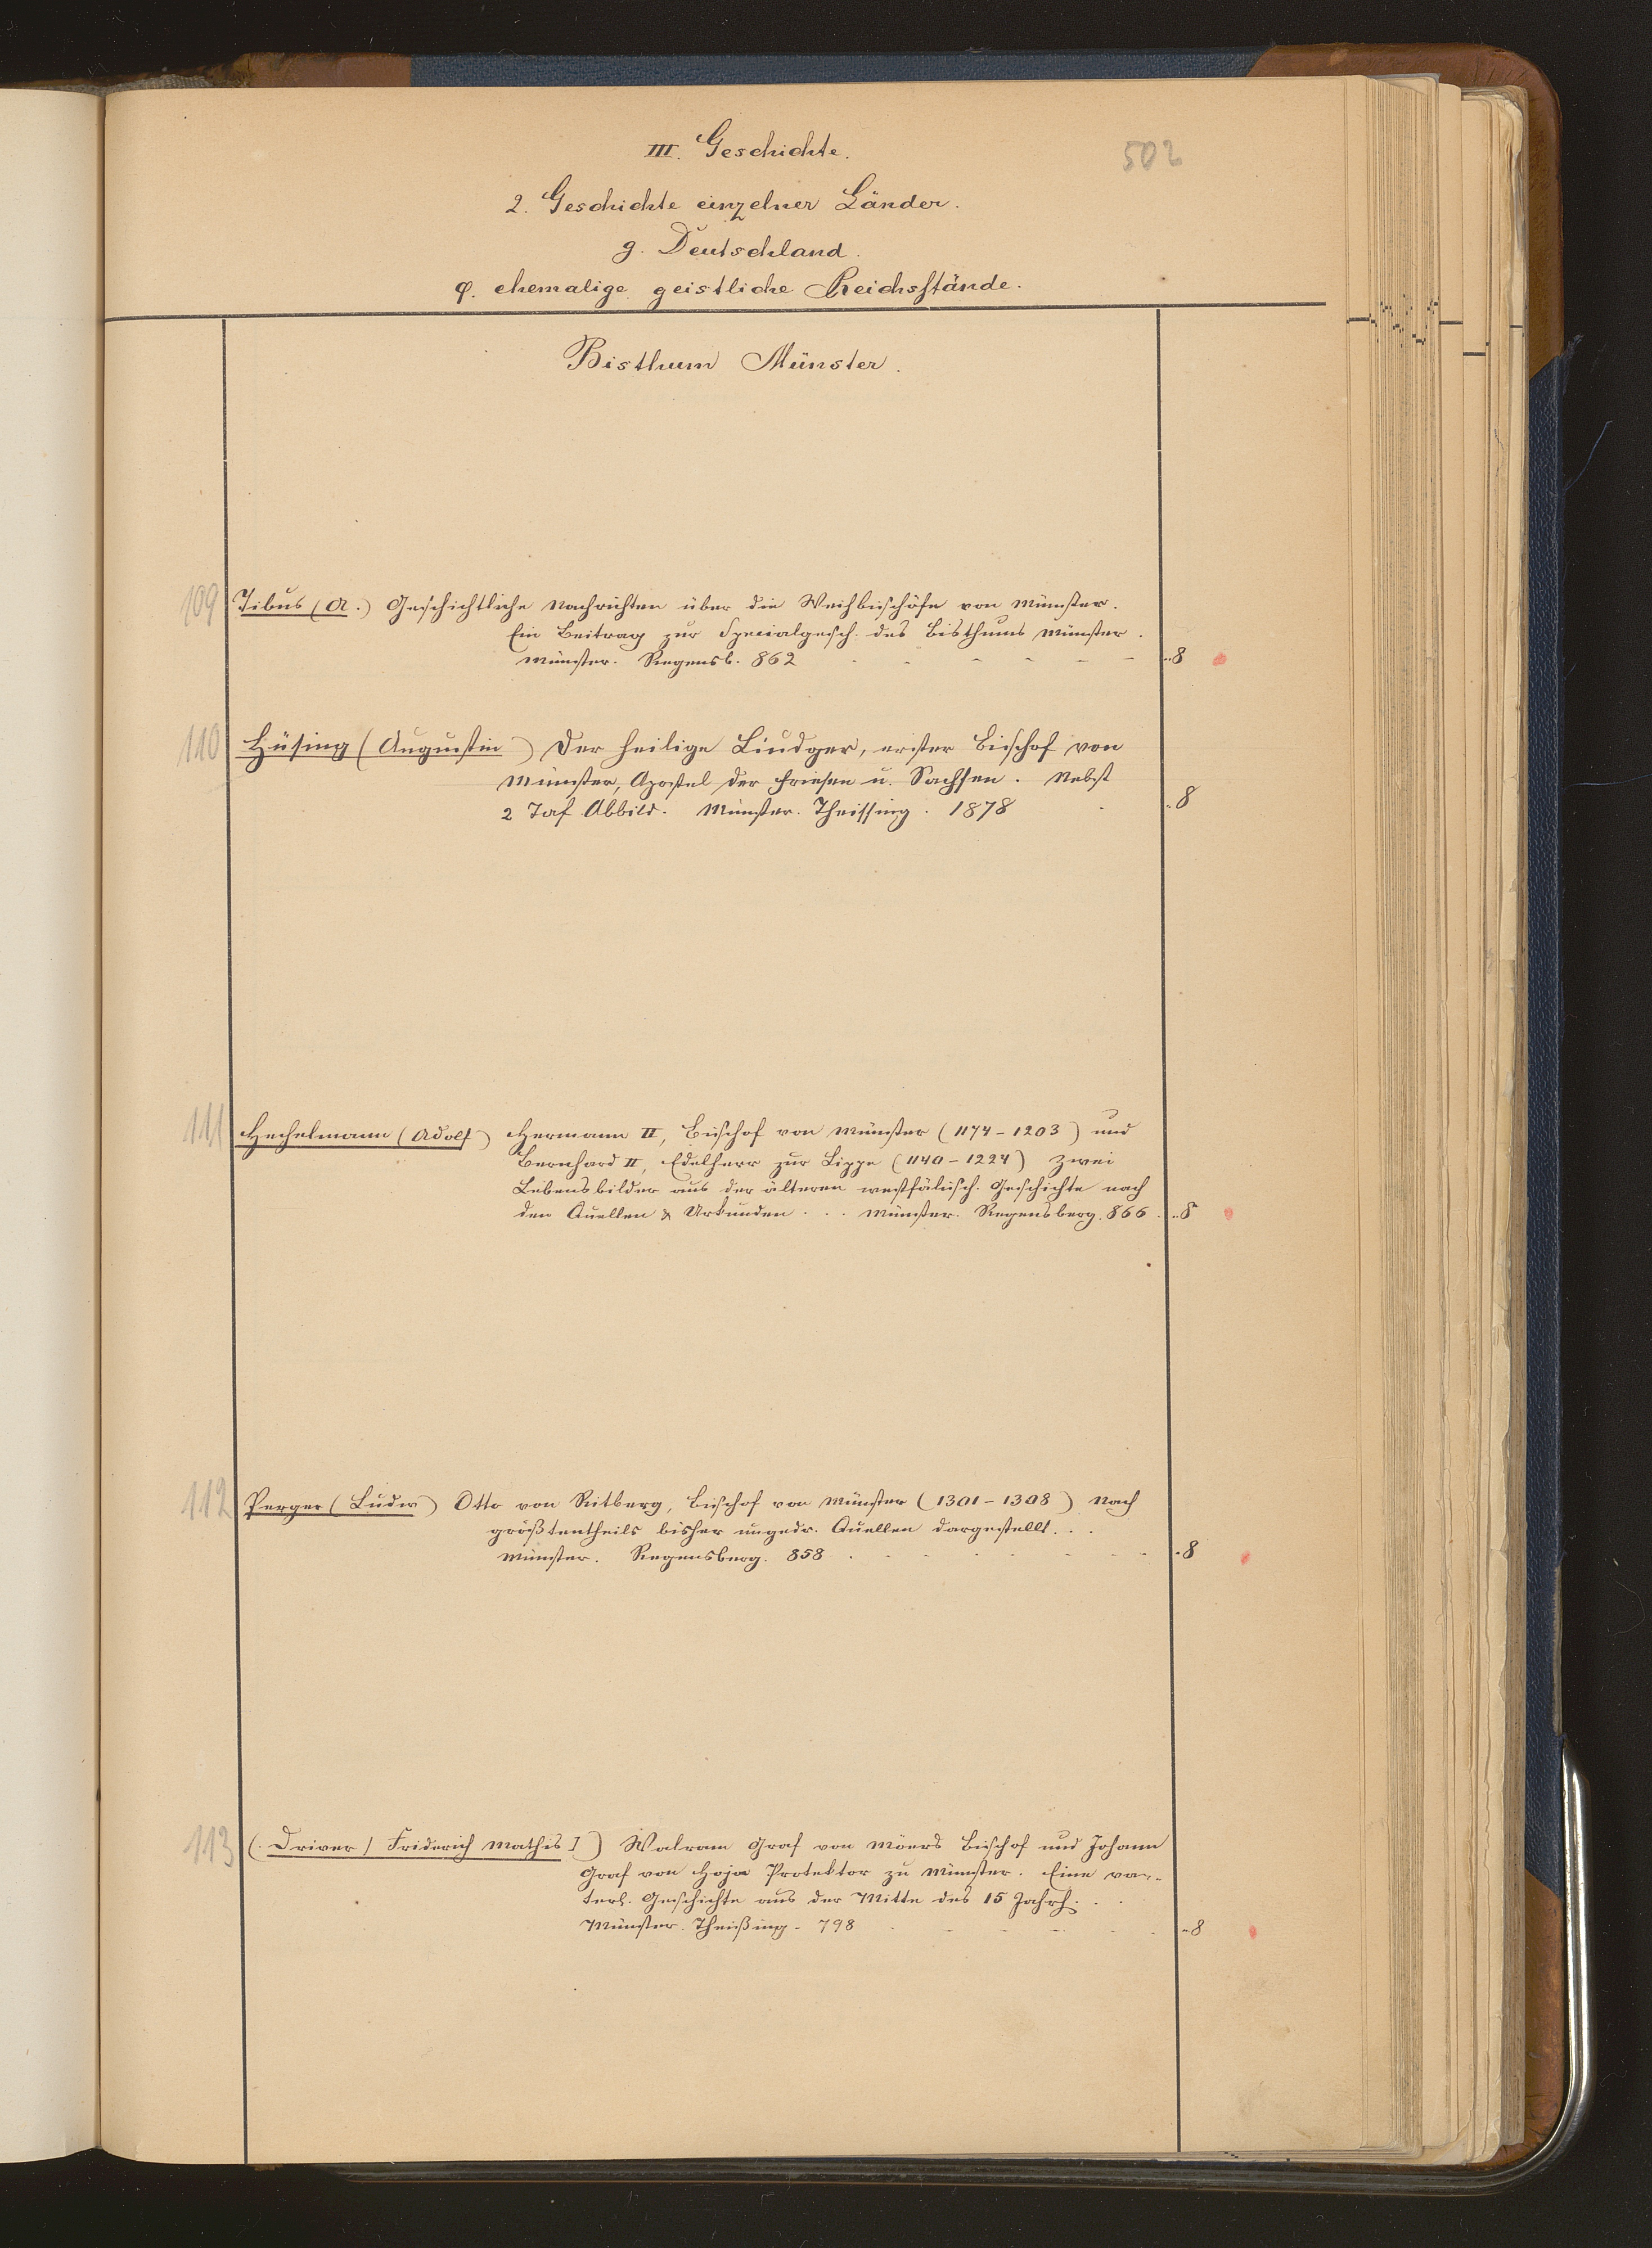 III. Geschichte.
502
2. Geschichte einzelner Länder.
g. Deutschland.
φ. ehemalige geistliche Reichsstände.
Bisthum Münster.
109 Tibus (A.) Geschichtliche Nachrichten über die Weihbischöfe von Münster.
Ein Beitrag zur Specialgesch. des Bisthums Münster.
Münster. Regensb. 862 - - - - - 8
110 Hüsing (Augustin) Der heilige Liudger, erster Bischof von
Münster, Apostel der Friesen u. Sachsen. Nebst
2 Taf Abbild. Münster. Theissing. 1878 8
111 Hechelmann (Adolf) Hermann II, Bischof von Münster (1174-1203) und
Bernhard II, Edelherr zur Lippe (1140-1224) Zwei
Lebensbilder aus der älteren westfälisch. Geschichte nach
den Quellen & Urkunden . . . Münster. Regensberg. 866. 8
112 Perger (Ludw) Otto von Ritberg, Bischof von Münster (1301-1308) Nach
größtentheils bisher ungedr. Quellen dargestellt. . .
Münster. Regensberg. 858 . - - . . - - - 8
113 (. Driver / Friderich Mathis ]) Walram Graf von Möers Bischof und Johann
Graf von Hoja Protektor zu Münster. Eine va-
terl. Geschichte aus der Mitte des 15 Jahrh. . .
Münster. Theißing. 798 . - - - - . 8